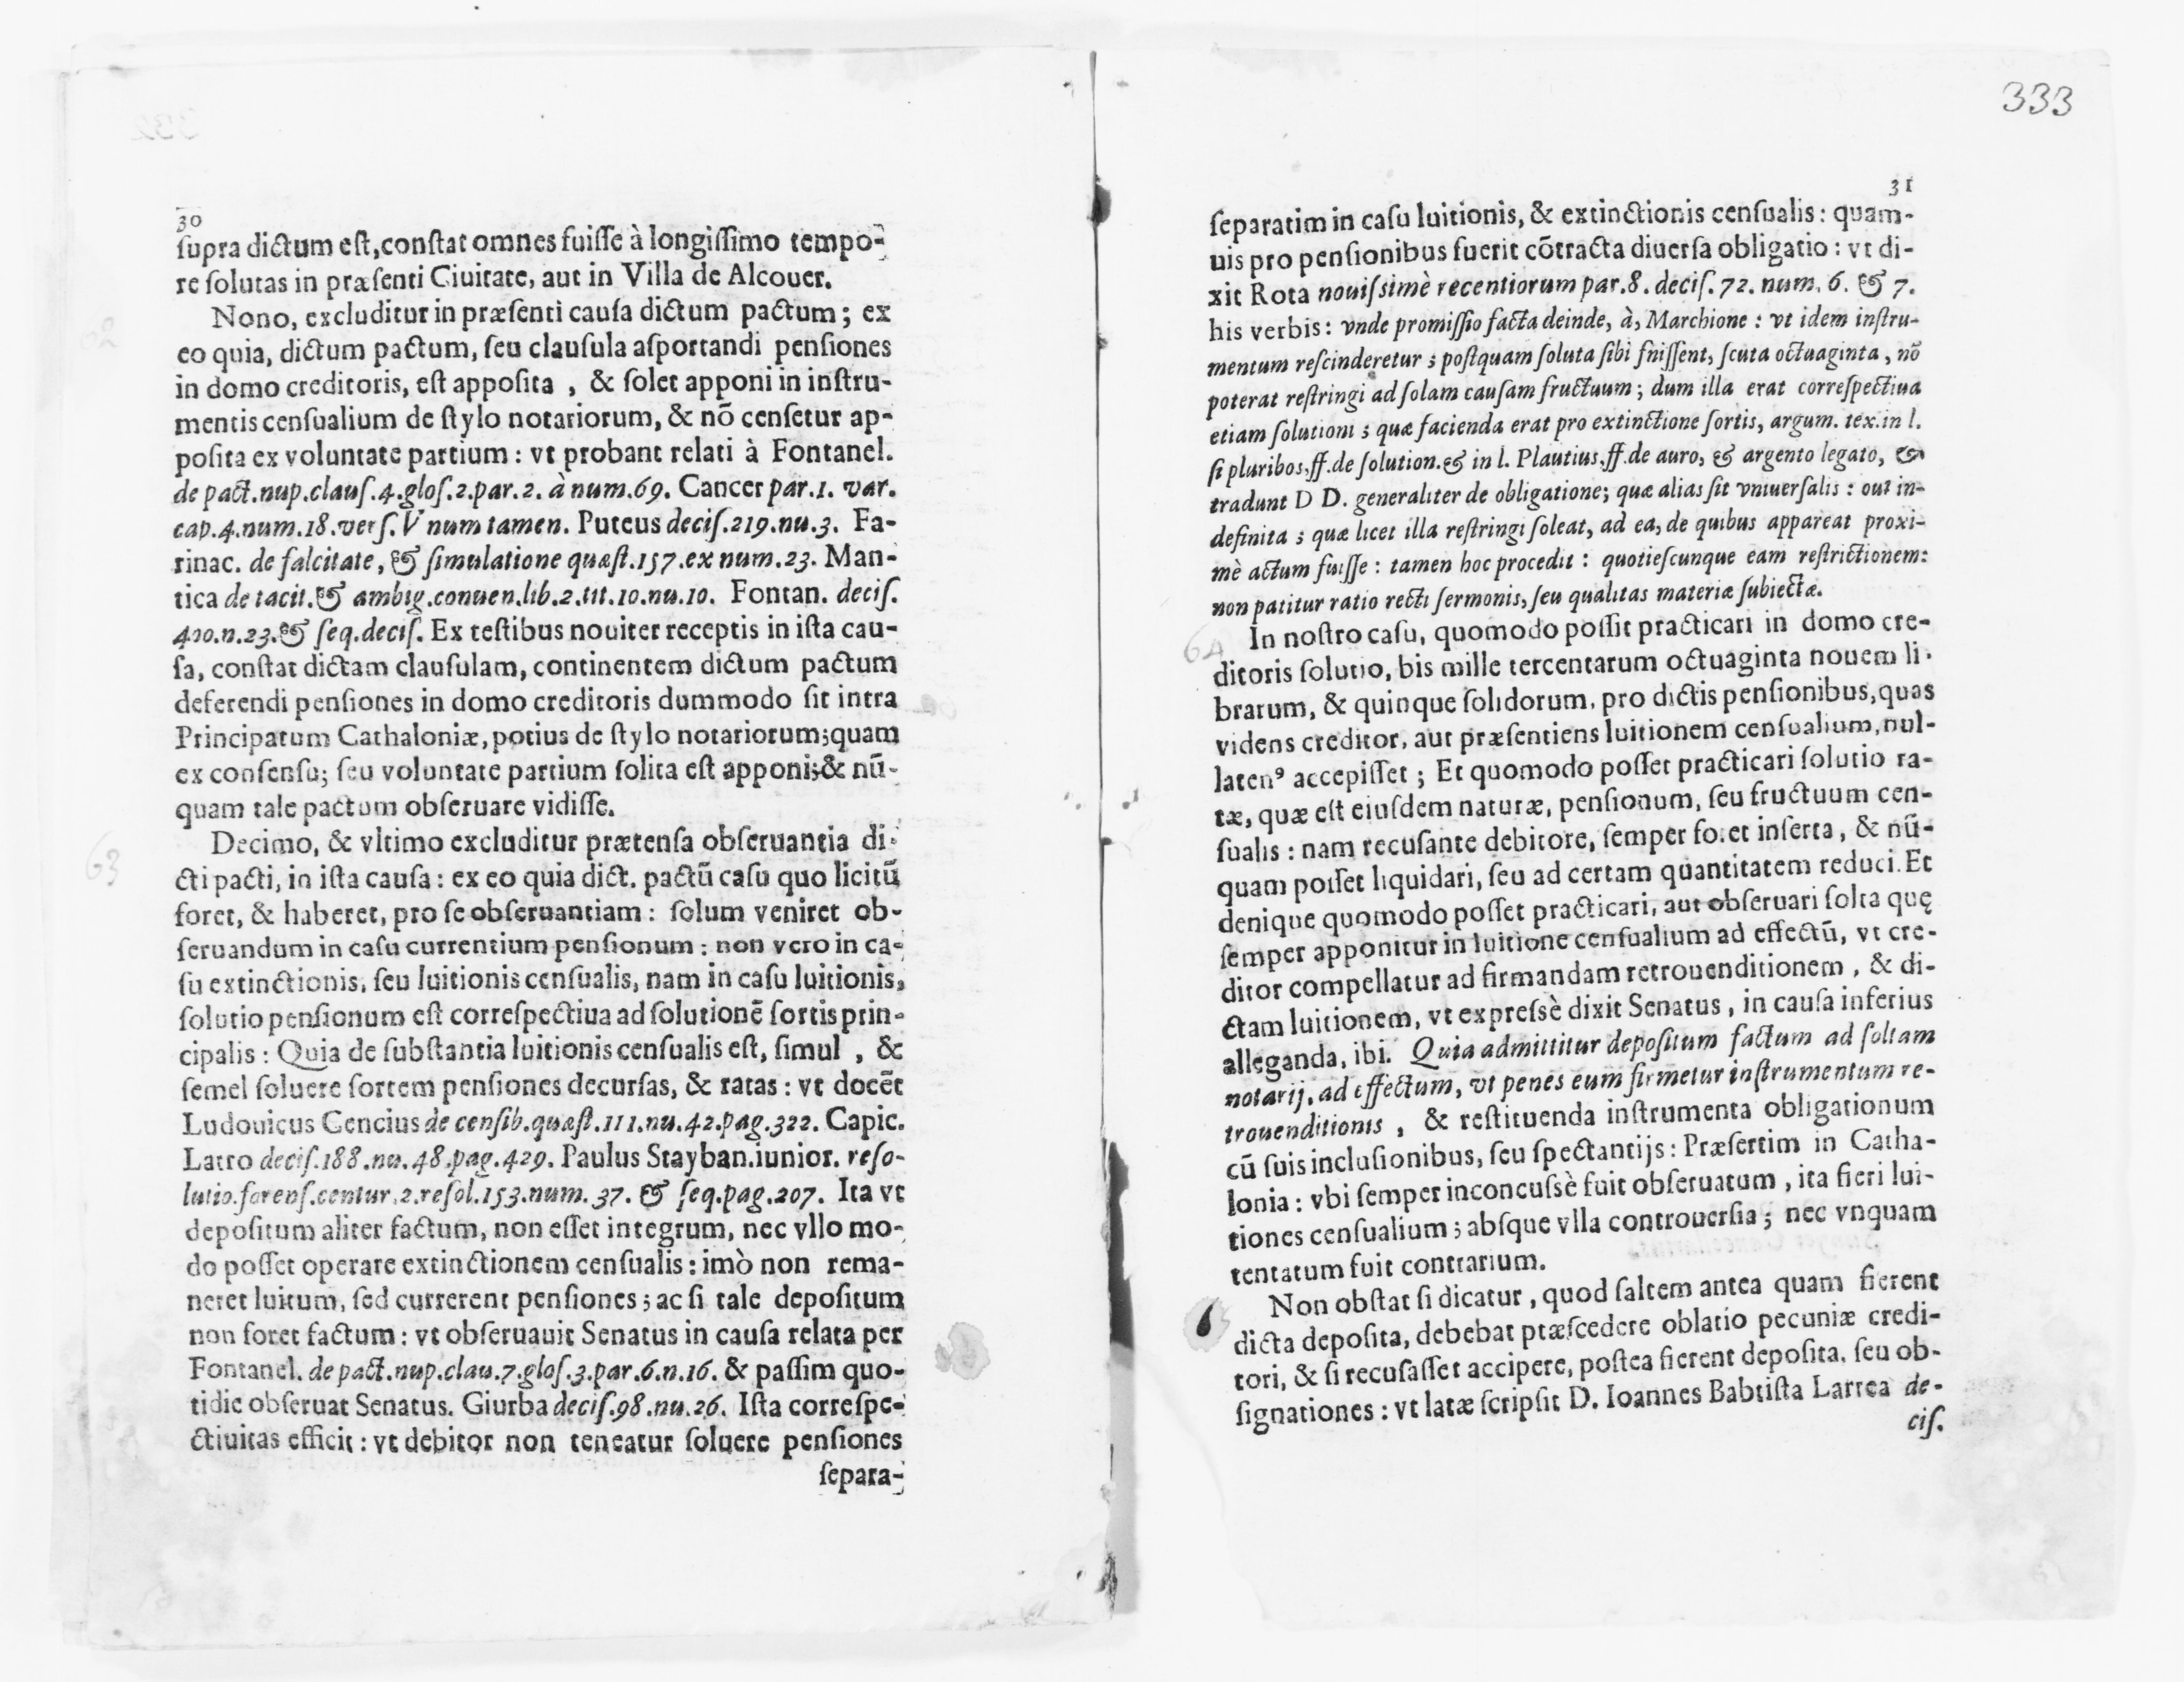 30
supra dictum est, constat omnes fuisse à longissimo tempo-
re solutas in præsenti Ciuitate, aut in Villa de Alcouer.
Nono, excluditur in præsenti causa dictum pactum; ex
eo quia, dictum pactum, seu clausula asportandi pensiones
in domo creditoris, est apposita , & solet apponi in instru-
mentis censualium de stylo notariorum, & nō censetur ap-
posita ex voluntate partium : vt probant relati à Fontanel.
de pact.nup.claus.4.glos.2.par.2. à num.69. Cancer par.1. var.
cap.4.num.18.vers. V num tamen. Puteus decis.219.nu.3. Fa-
rinac. de falcitate, & simulatione quæst.157.ex num.23. Man-
tica de tacit.& ambig.conuen.lib.2.tit.10.nu.10. Fontan. decis.
410.n.23.& seq.decis. Ex testibus nouiter receptis in ista cau-
sa, constat dictam clausulam, continentem dictum pactum
deferendi pensiones in domo creditoris dummodo sit intra
Principatum Cathaloniæ, potius de stylo notariorum;quam
ex consensu; seu voluntate partium solita est apponi;& nū-
quam tale pactum obseruare vidisse.
63
Decimo, & vltimo excluditur prætensa obseruantia di-
cti pacti, in ista causa : ex eo quia dict. pactū casu quo licitū
foret, & haberet, pro se obseruantiam : solum veniret ob-
seruandum in casu currentium pensionum : non vero in ca-
su extinctionis, seu luitionis censualis, nam in casu luitionis,
solutio pensionum est correspectiua ad solutionē sortis prin-
cipalis : Quia de substantia luitionis censualis est, simul , &
semel soluere sortem pensiones decursas, & ratas : vt docēt
Ludouicus Cencius de censib.quæst.111.nu.42.pag.322. Capic.
Latro decis.188.nu.48.pag.429. Paulus Stayban.iunior. reso-
lutio.forens.centur.2.resol.153.num.37. & seq.pag.207. Ita vt
depositum aliter factum, non esset integrum, nec vllo mo-
do posset operare extinctionem censualis : imò non rema-
neret luitum, sed currerent pensiones ; ac si tale depositum
non foret factum : vt obseruauit Senatus in causa relata per
Fontanel. de pact.nup.clau.7.glos.3.par.6.n.16. & passim quo-
tidie obseruat Senatus. Giurba decis.98.nu.26. Ista correspe-
ctiuitas efficit : vt debitor non teneatur soluere pensiones
separa-
333
31
separatim in casu luitionis, & extinctionis censualis : quam-
uis pro pensionibus fuerit cōtracta diuersa obligatio : vt di-
xit Rota nouissimè recentiorum par.8. decis. 72. num. 6. & 7.
his verbis : vnde promissio facta deinde, à, Marchione : vt idem instru-
mentum rescinderetur ; postquam soluta sibi fnissent, scuta octuaginta , nō
poterat restringi ad solam causam fructuum ; dum illa erat correspectiua
etiam solutioni ; quæ facienda erat pro extinctione sortis, argum. tex.in l.
si pluribos,ff.de solution.& in l. Plautius,ff.de auro, & argento legato, &
tradunt D D. generaliter de obligatione; quæ alias sit vniuersalis : out in-
definita ; quæ licet illa restringi soleat, ad ea, de quibus appareat proxi-
mè actum fuisse : tamen hoc procedit : quotiescunque eam restrictionem:
non patitur ratio recti sermonis, seu qualitas materiæ subiectæ.
64
In nostro casu, quomodo possit practicari in domo cre-
ditoris solutio, bis mille tercentarum octuaginta nouem li-
brarum, & quinque solidorum, pro dictis pensionibus, quas
videns creditor, aut præsentiens luitionem censualium, nul-
latenꝰ accepisset ; Et quomodo posset practicari solutio ra-
tæ, quæ est eiusdem naturæ, pensionum, seu fructuum cen-
sualis : nam recusante debitore, semper foret inserta, & nū-
quam posset liquidari, seu ad certam quantitatem reduci. Et
denique quomodo posset practicari, aut obseruari solta quę
semper apponitur in luitione censualium ad effectū, vt cre-
ditor compellatur ad firmandam retrouenditionem , & di-
ctam luitionem, vt expressè dixit Senatus , in causa inferius
alleganda, ibi. Quia admittitur depositum factum ad soltam
notarij, ad effectum, vt penes eum firmetur instrumentum re-
trouenditionis , & restituenda instrumenta obligationum
cū suis inclusionibus, seu spectantijs : Præsertim in Catha-
lonia : vbi semper inconcussè fuit obseruatum , ita fieri lui-
tiones censualium ; absque vlla controuersia ; nec vnquam
tentatum fuit contrarium.
Non obstat si dicatur , quod saltem antea quam fierent
dicta deposita, debebat præscedere oblatio pecuniæ credi-
tori, & si recusasset accipere, postea fierent deposita, seu ob-
signationes : vt latæ scripsit D. Ioannes Babtista Larrea de-
cis.